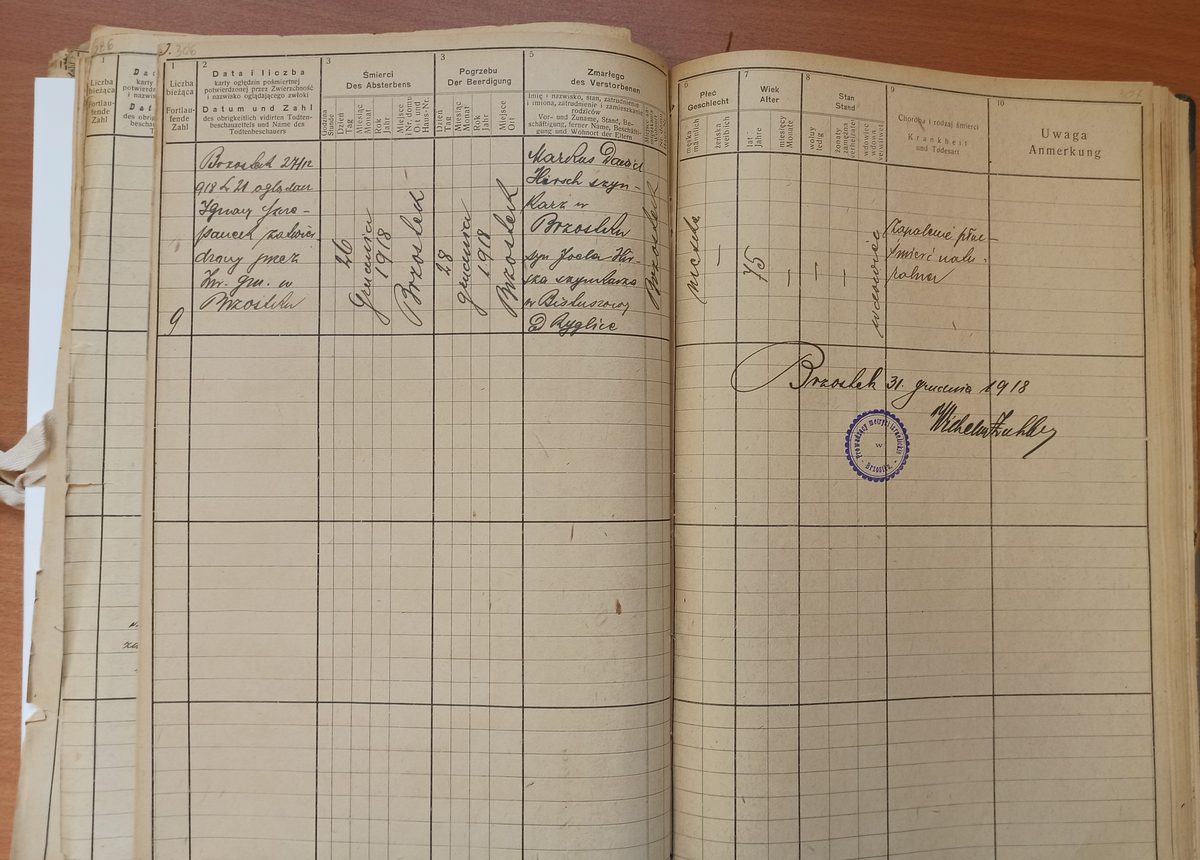 J. 306
1
Liczba
bieżąca
Fortlau-
fende
Zahl
2
Data i liczba
karty oględzin pośmiertnej
potwierdzonej przez Zwierzchność
i nazwisko oglądającego zwłoki
Datum und Zahl
des obrigkeitlich vidirten Todten-
beschauzettels und Name des
Todtenbeschauers
3
Śmierci
Des Absterbens
Godzina
Stunde
Dzień
Tag
Miesiąc
Monat
Rok
Jahr
Miejsce
i Nr. domu
Ort und
Haus-Nr.
3
Pogrzebu
Der Beerdigung
Dzień
Tag
Miesiąc
Monat
Rok
Jahr
Miejsce
Ort
5
Zmarłego
des Verstorbenen
imię i nazwisko, stan, zatrudnienie
i imiona, zatrudnienie i zamieszkanie
rodziców
Vor- und Zuname, Stand, Be-
schäftigung, ferner Name, Beschäfti-
gung und Wohnort der Eltern
6
Płeć
Geschlecht
męska
männlich
żeńska
weiblich
7
Wiek
Alter
lat
Jahre
miesięcy
Monate
8
Stan
Stand
wolny
ledig
żonaty
zamężna
verheiratet
wdowiec
wdowa
verwittwet
9
Choroba i rodzaj śmierci
Krankheit
und Todesart
10
Uwaga
Anmerkung
9
Brzostek 27/12
918 L 21 oglądacz
Ignacy
drony przez
Zw. gm. w
Brzostku
26
Grudnia
1918
Brzostek
28
grudnia
1918
Brzostek
Markus Dawid
Hirsch szyn-
karz w
Brzostku
syn Joela Hir-
sza szynkarza
w Bistuszowy
ad Ryglice
Brzostek
męska
75
wdowiec
Zapalenie płuc
śmierć natu-
ralna
Brzostek 31. grudnia 1918
Wilhelm
Prowadzący Metryki izraelickie
w
Brzostku